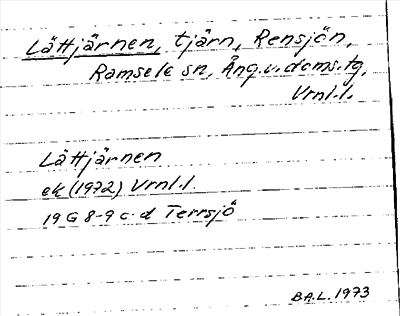 Lättjärnen, tjärn, Rensjön,
Ramsele sn, Ång. v. doms. tg,
Vrnl. l.
Lättjärnen
ek (1972) Vrnl. l.
19 G 8-9 c-d Terrsjö
B.A.L. 1973